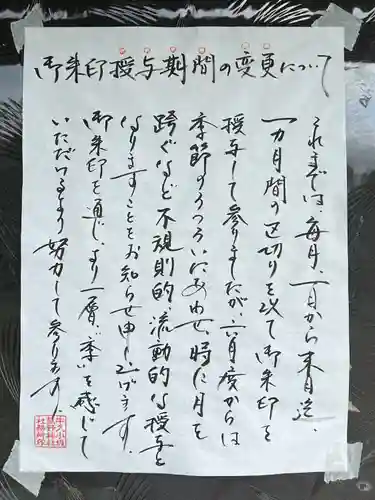 御朱印授与期間の変更について
これまでは、毎月、一日から末日迄、
一カ月間の区切りを以て御朱印を
授与して参りましたが、六月度からは
季節のうつろいにあわせ、時に月を
跨ぐなど不規則的、流動的な授与と
なりますことをお知らせ申し上げます。
御朱印を通じ、より一層、“季”を感じて
いただけるよう努力して参ります。
牛天小城
熊野神社
社務所印